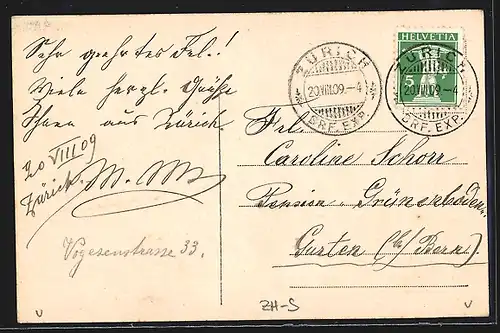 Sehr geehrtes Frl.!
Viele herzl. Grüße
Ihnen aus Zürich.
20 VIII 09
Zürich. M.
Vogesenstrasse 33.
HELVETIA
5
ZÜRICH
20.VIII.09.-4
BRF. EXP.
ZÜRICH
20.VIII.09.-4
BRF. EXP.
Frl.
Caroline Schorr
Pension "Grünenboden"
Gurten (b/Bern).
ZH-S